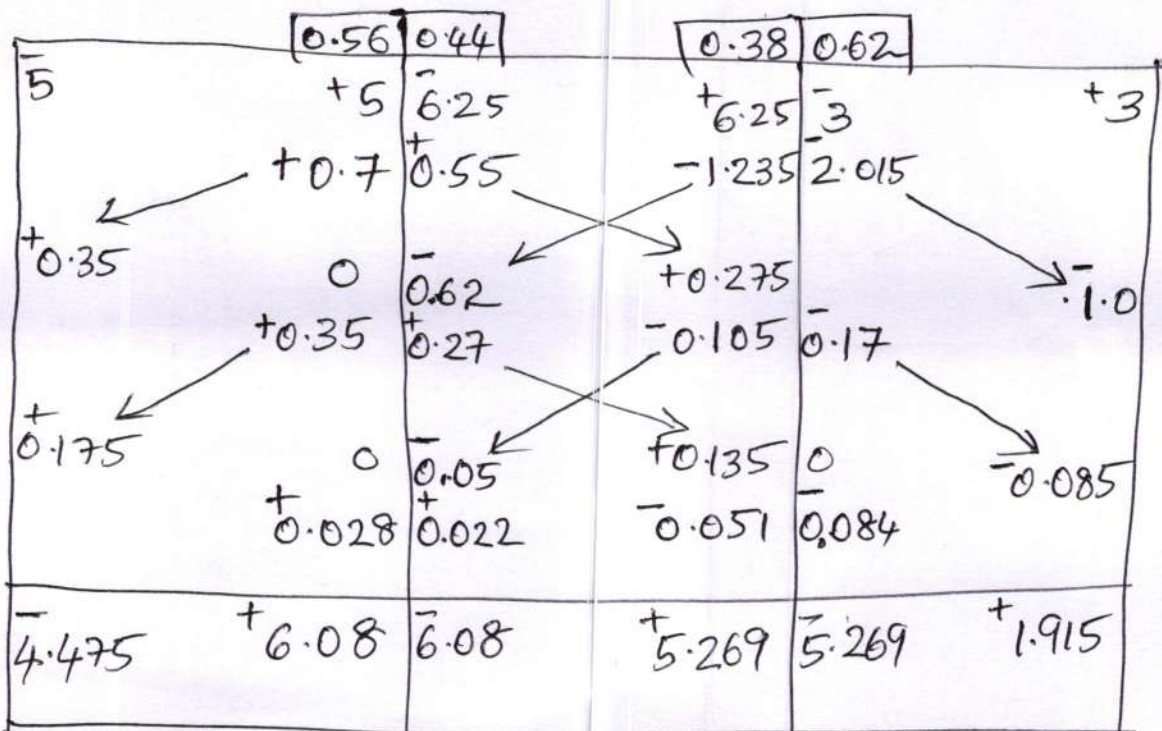 0.56 0.44 0.38 0.62
-5 +5 -6.25 +6.25 -3 +3
+0.7 +0.55 -1.235 -2.015
+0.35 0 -0.62 +0.275 -1.0
+0.35 +0.27 -0.105 -0.17
+0.175 0 -0.05 +0.135 0 -0.085
+0.028 +0.022 -0.051 -0.084
-4.475 +6.08 -6.08 +5.269 -5.269 +1.915